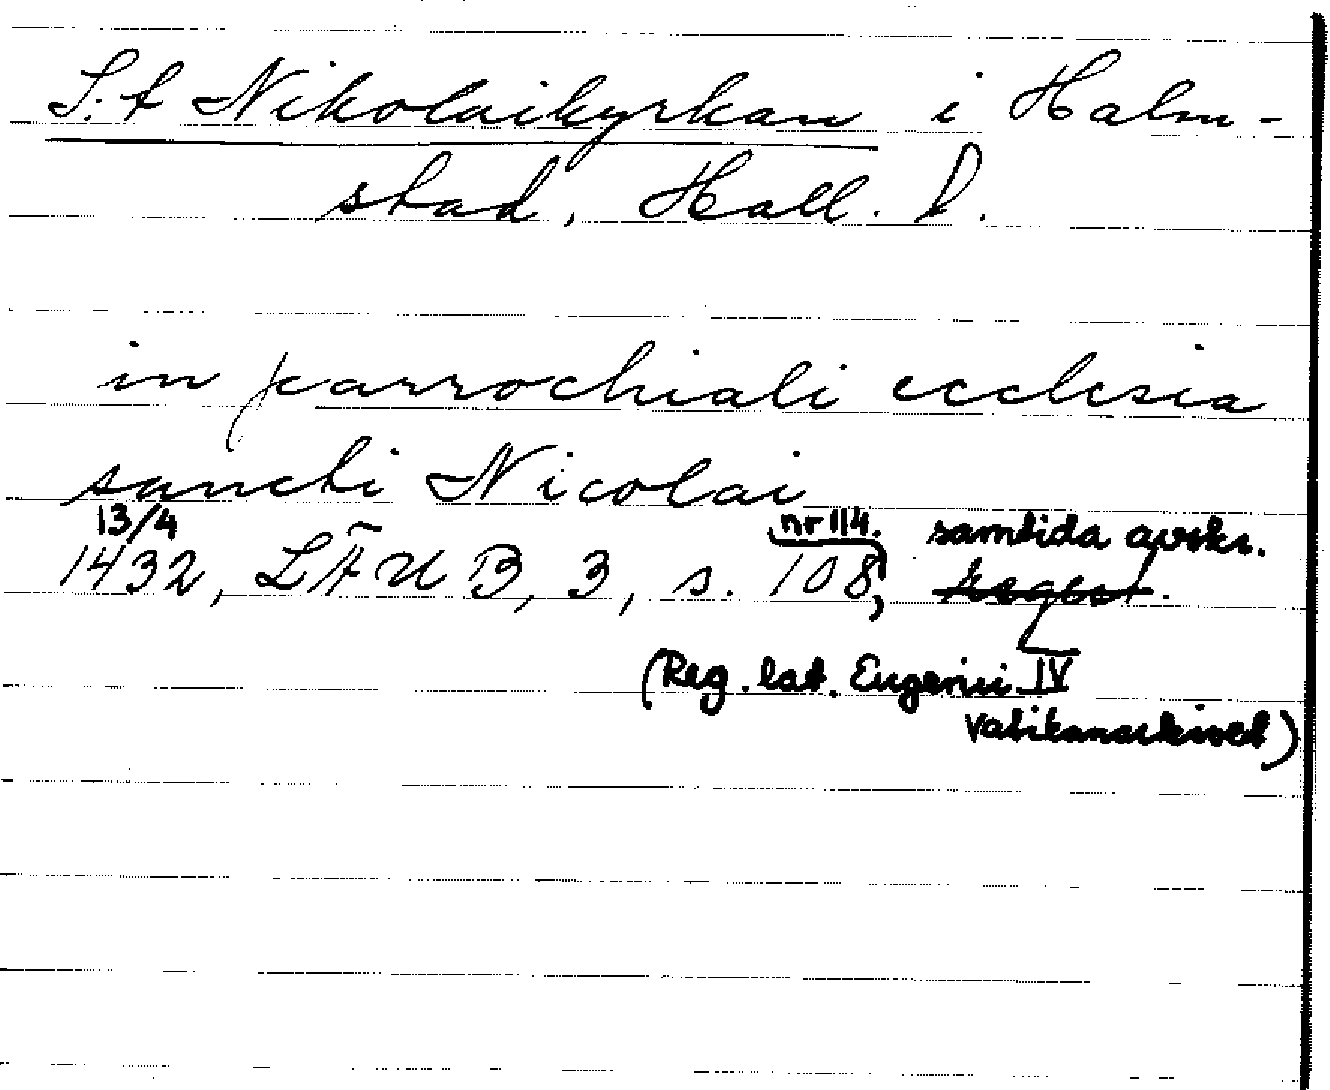 S:t Nikolaikyrkan i Halm-
stad, Hall. l.
in parrochiali ecclesia
sancti Nicolai
13/4 nr 114. samtida avskr.
1432, LÄUB, 3, s. 108, Regest.
(Reg. lat. Eugenii IV
Vatikanarkivet)